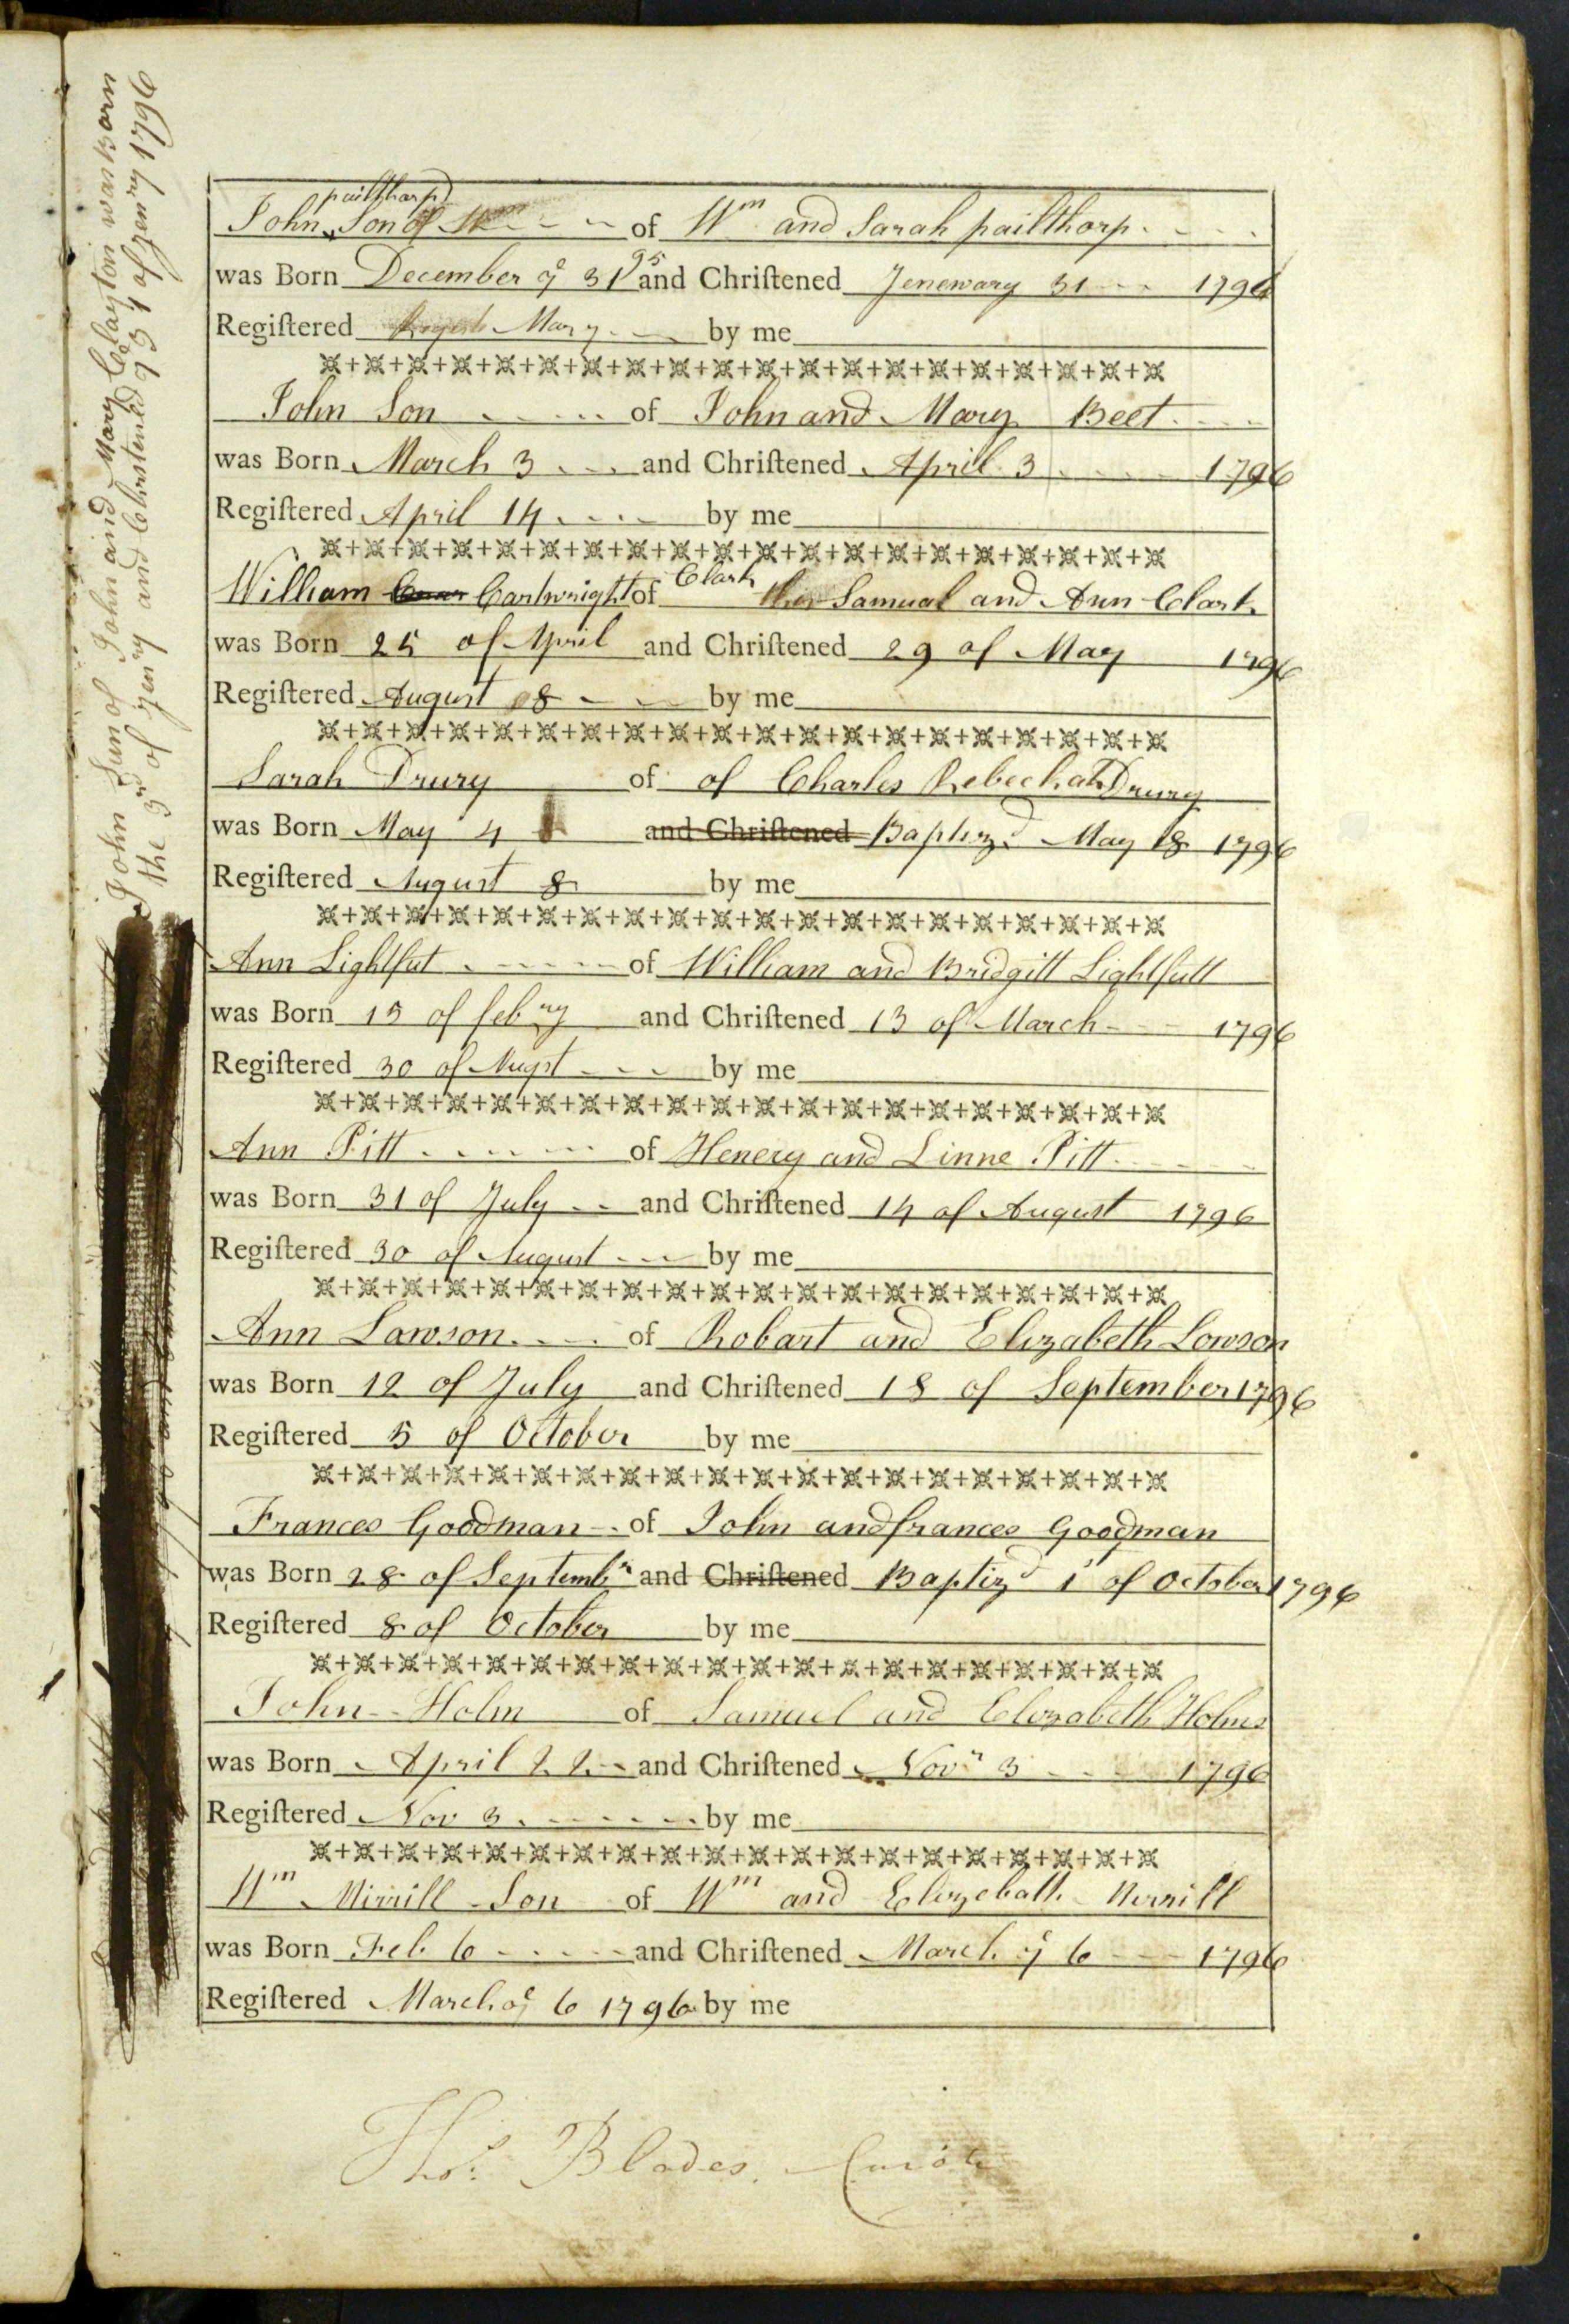 John Sun of John and Mary Clayton was Born
the 3rd of Jenry and Christened ye 31 of Jenry 1796
pailthorp
John Son of Wm of Wm and Sarah pailthorp
95
was Born December ye 31 and Chriſtened Jenewary 31 1796
Regiſtered by me
John Son of John and Mary Beet
was Born March 3 and Chriſtened April 3 1796
Regiſtered April 14 by me
Clark
William Cartwright of Samual and Ann Clark
was Born 25 of April and Chriſtened 29 of May 1796
Regiſtered August 8 by me
Sarah Drury of of Charles Rebeckah Drury
was Born May 4 and Chriſtened Baptizd May 18 1796
Regiſtered August 8 by me
Ann Lightfut of William and Bridgitt Lightfutt
was Born 15 of febry and Chriſtened 13 of March 1796
Regiſtered 30 of Augst by me
Ann Pitt of Henery and Linne Pitt
was Born 31 of July and Chriſtened 14 of August 1796
Regiſtered 30 of August by me
Ann Lawson of Robart and Elizabeth Lowson
was Born 12 of July and Chriſtened 18 of September 1796
Regiſtered 5 of October by me
Frances Goodman of John and frances Goodman
was Born 28 of Septembr and Chriſtened Baptizd 1 of October 1796
Regiſtered 8 of October by me
John Holm of Samuel and Elizabeth Holms
was Born April 22 and Chriſtened Novr 3 1796
Regiſtered Nov 3 by me
Wm Mirrill Son of Wm and Elizebath Merrill
was Born Feb 6 and Chriſtened March ye 6 1796
Regiſtered March ye 6 1796 by me
Thos. Blades. Curate